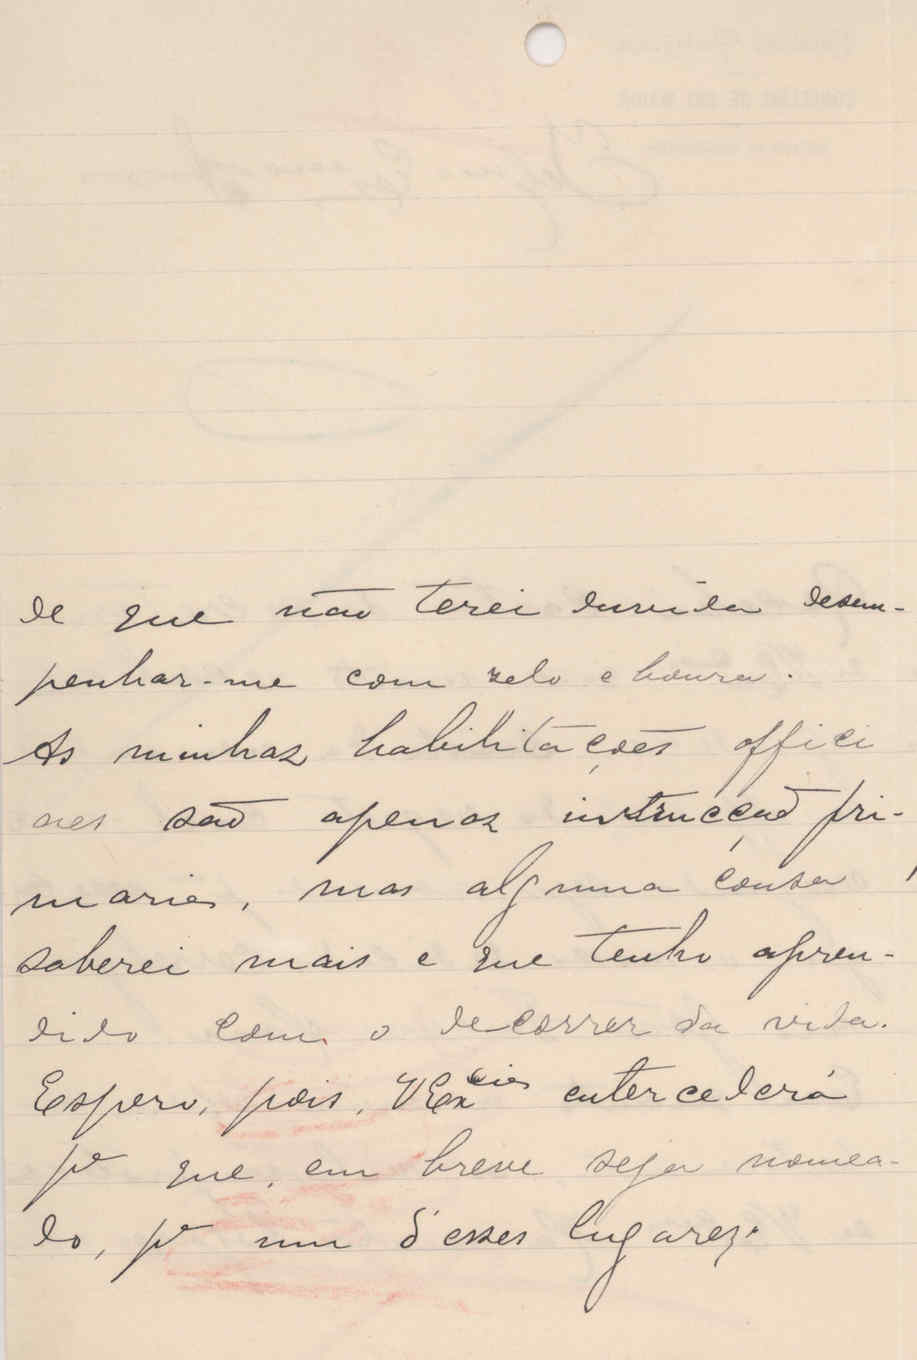 de que não terei duvida desem-
penhar-me com zelo e honra.
As minhas habilitações offici
aes são apenas instrucção pri-
maria, mas alguma cousa
saberei mais e que tenho apren-
dido com o decorrer da vida.
Espero, pois, VExcia entercederá
pa que, em breve seja nomea-
do, pa um d'esses lugares.